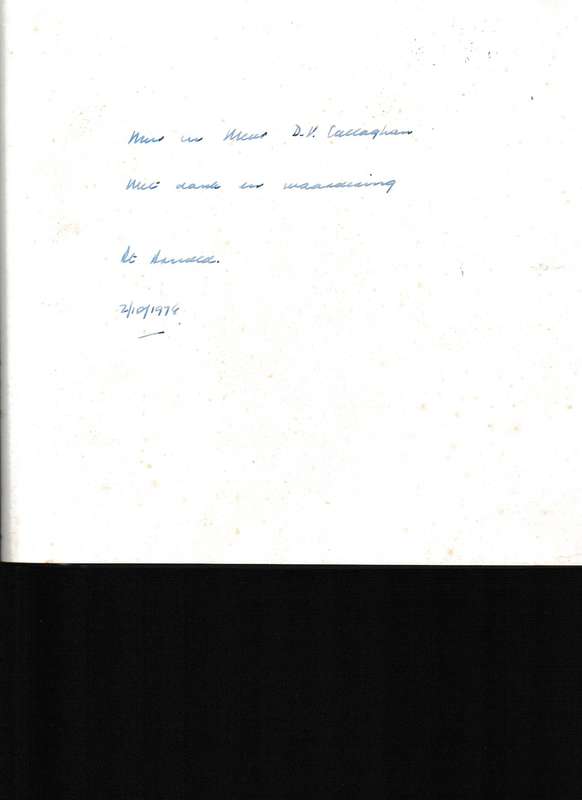 Mnr en Mev D.V. Callaghan
Met dank en waardering
2/10/1978